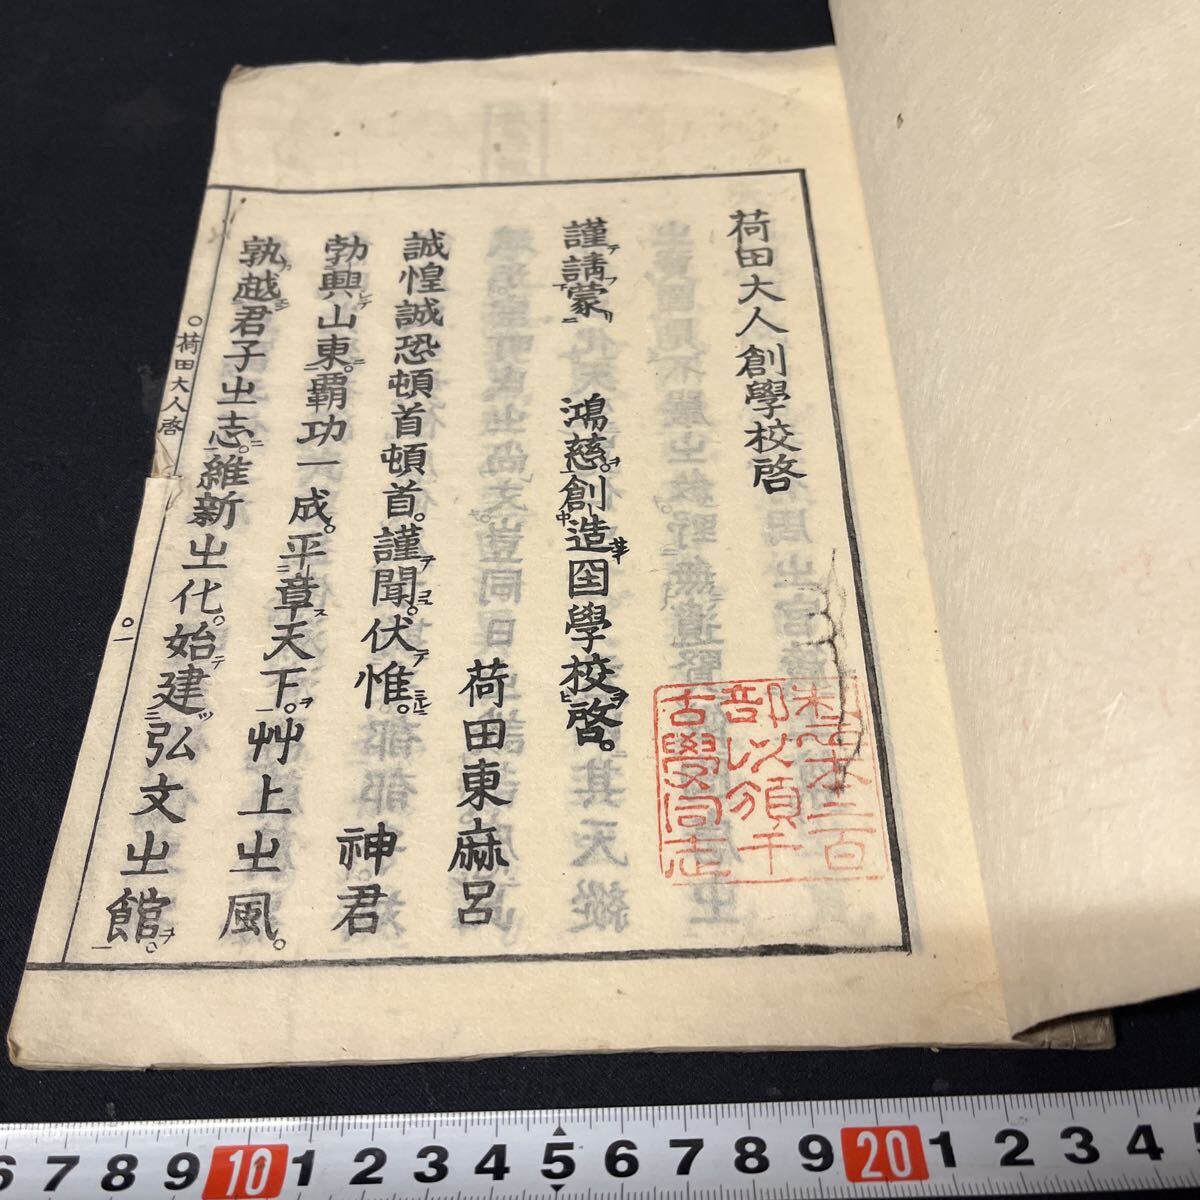 荷田大人創學校啓
謹請蒙　鴻慈創造国學校啓。
荷田東麻呂
誠惶誠恐頓首頓首。謹聞。伏惟。神君
勃興山東。覇功一成。平章天下。艸上㞢風。
孰越君子㞢志。維新㞢化。始建弘文㞢館。
〇荷田大人啓
〇一
部以頒千
古學同志
6 7 8 9 10 1 2 3 4 5 6 7 8 9 20 1 2 3 4